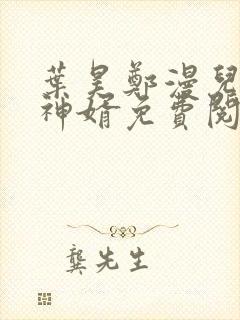 葉昊鄭漫兒
神婿免費閱
龔先生